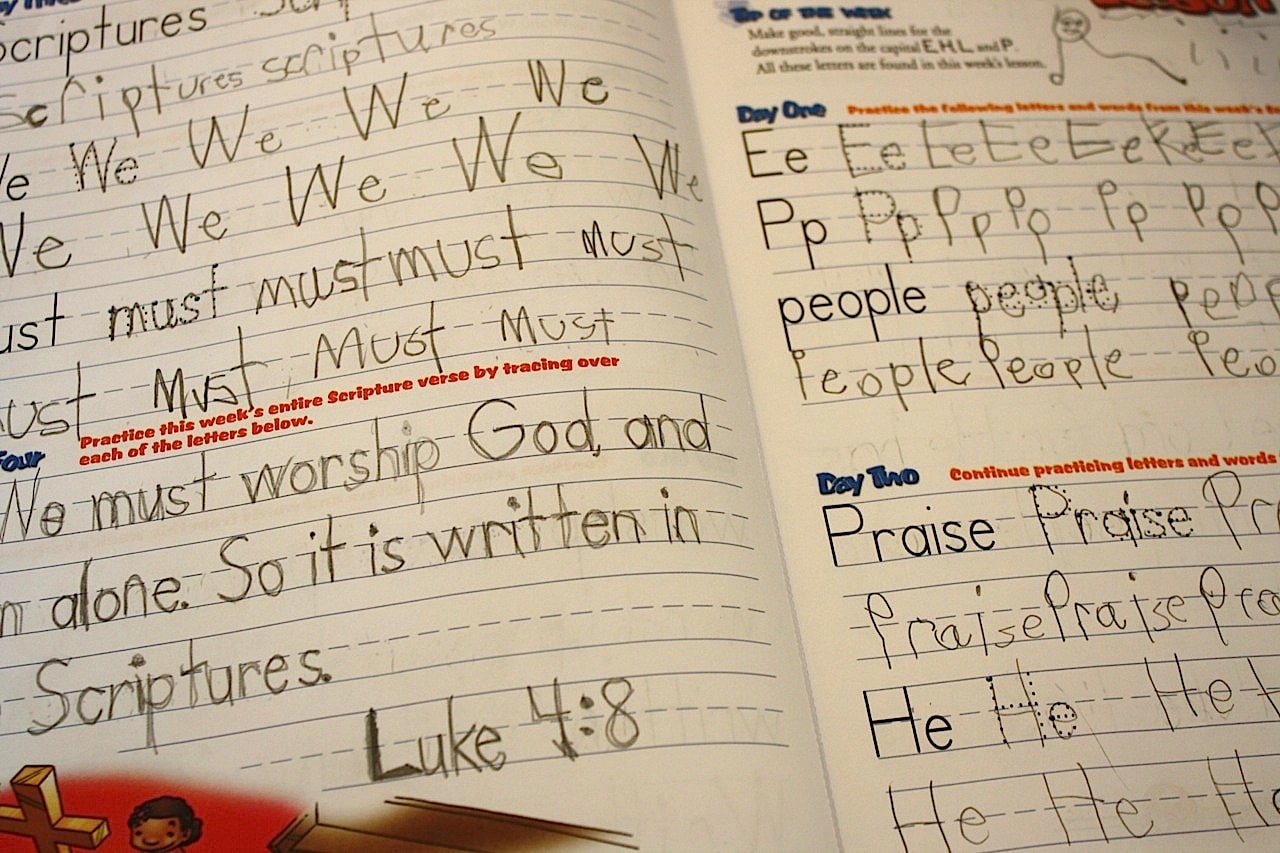 Scriptures
Scriptures scriptures
We We We We We
We We We We We
must must must must must
Must Must Must Must
Practice this week's entire Scripture verse by tracing over
each of the letters below.
Four
We must worship God, and
alone. So it is written in
Scriptures.
Luke 4:8
TIP OF THE WEEK
Make good, straight lines for the
downstrokes on the capital E, H, L, and P.
All these letters are found in this week's lesson.
Day One Practice the following letters and words from this week's
Ee Ee Ee Ee Ee Ee Ee
Pp Pp Pp Pp Pp Pp P
people people peop
People People Peo
Day Two Continue practicing letters and words
Praise Praise Pr
Praise Praise Pra
He He He H
He He He